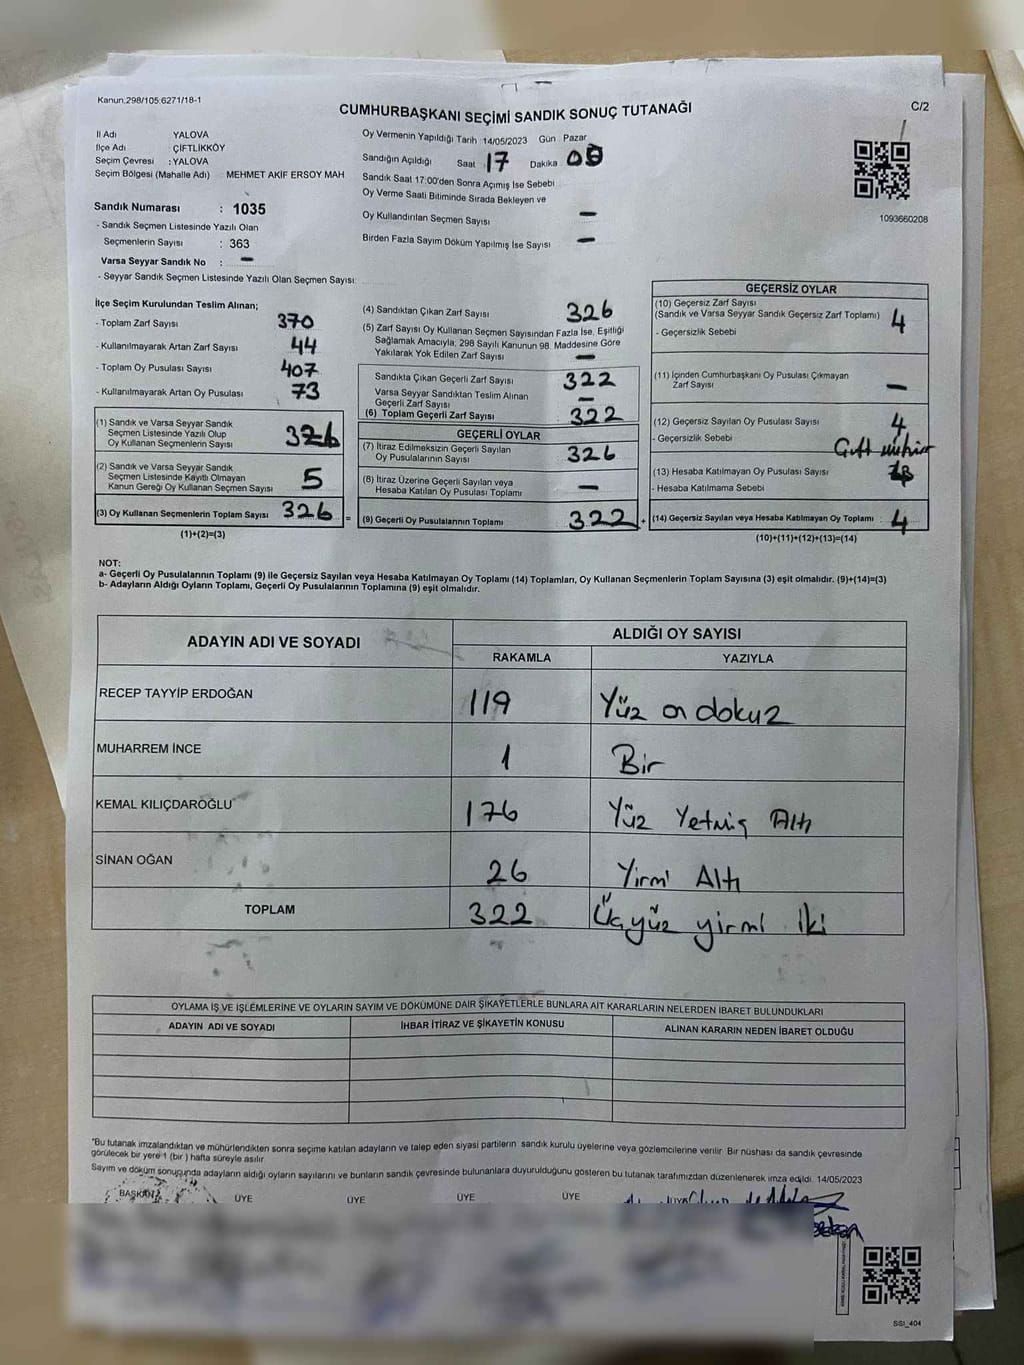 Kanun.298/105:6271/18-1
CUMHURBAŞKANI SEÇİMİ SANDIK SONUÇ TUTANAĞI
C/2
İl Adı YALOVA
İlçe Adı : ÇİFTLİKKÖY
Seçim Çevresi : YALOVA
Seçim Bölgesi (Mahalle Adı) MEHMET AKİF ERSOY MAH
Oy Vermenin Yapıldığı Tarih 14/05/2023 Gün Pazar
Sandığın Açıldığı Saat 17 Dakika 00
Sandık Saat 17:00'den Sonra Açımış İse Sebebi
Oy Verme Saati Bitiminde Sırada Bekleyen ve
Oy Kullandırılan Seçmen Sayısı –
Birden Fazla Sayım Döküm Yapılmış İse Sayısı –
1093660208
Sandık Numarası : 1035
- Sandık Seçmen Listesinde Yazılı Olan
Seçmenlerin Sayısı : 363
Varsa Seyyar Sandık No : –
- Seyyar Sandık Seçmen Listesinde Yazılı Olan Seçmen Sayısı:
İlçe Seçim Kurulundan Teslim Alınan;
- Toplam Zarf Sayısı 370
- Kullanılmayarak Artan Zarf Sayısı 44
- Toplam Oy Pusulası Sayısı 407
- Kullanılmayarak Artan Oy Pusulası 73
(1) Sandık ve Varsa Seyyar Sandık
Seçmen Listesinde Yazılı Olup
Oy Kullanan Seçmenlerin Sayısı 326
(2) Sandık ve Varsa Seyyar Sandık
Seçmen Listesinde Kayıtlı Olmayan
Kanun Gereği Oy Kullanan Seçmen Sayısı 5
(3) Oy Kullanan Seçmenlerin Toplam Sayısı 326 =
(1)+(2)=(3)
(4) Sandıktan Çıkan Zarf Sayısı 326
(5) Zarf Sayısı Oy Kullanan Seçmen Sayısından Fazla İse, Eşitliği
Sağlamak Amacıyla; 298 Sayılı Kanunun 98. Maddesine Göre
Yakılarak Yok Edilen Zarf Sayısı –
Sandıkta Çıkan Geçerli Zarf Sayısı 322
Varsa Seyyar Sandıktan Teslim Alınan
Geçerli Zarf Sayısı –
(6) Toplam Geçerli Zarf Sayısı 322
GEÇERLİ OYLAR
(7) İtiraz Edilmeksizin Geçerli Sayılan
Oy Pusulalarının Sayısı 326
(8) İtiraz Üzerine Geçerli Sayılan veya
Hesaba Katılan Oy Pusulası Toplamı –
(9) Geçerli Oy Pusulalarının Toplamı 322 +
GEÇERSİZ OYLAR
(10) Geçersiz Zarf Sayısı
(Sandık ve Varsa Seyyar Sandık Geçersiz Zarf Toplamı) 4
- Geçersizlik Sebebi
(11) İçinden Cumhurbaşkanı Oy Pusulası Çıkmayan
Zarf Sayısı –
(12) Geçersiz Sayılan Oy Pusulası Sayısı 4
- Geçersizlik Sebebi Çift mühür
(13) Hesaba Katılmayan Oy Pusulası Sayısı
- Hesaba Katılmama Sebebi
(14) Geçersiz Sayılan veya Hesaba Katılmayan Oy Toplamı : 4
(10)+(11)+(12)+(13)=(14)
NOT:
a- Geçerli Oy Pusulalarının Toplamı (9) ile Geçersiz Sayılan veya Hesaba Katılmayan Oy Toplamı (14) Toplamları, Oy Kullanan Seçmenlerin Toplam Sayısına (3) eşit olmalıdır. (9)+(14)=(3)
b- Adayların Aldığı Oyların Toplamı, Geçerli Oy Pusulalarının Toplamına (9) eşit olmalıdır.
ADAYIN ADI VE SOYADI
ALDIĞI OY SAYISI
RAKAMLA YAZIYLA
RECEP TAYYİP ERDOĞAN 119 Yüz on dokuz
MUHARREM İNCE 1 Bir
KEMAL KILIÇDAROĞLU 176 Yüz Yetmiş Altı
SİNAN OĞAN 26 Yirmi Altı
TOPLAM 322 Üçyüz yirmi iki
OYLAMA İŞ VE İŞLEMLERİNE VE OYLARIN SAYIM VE DÖKÜMÜNE DAİR ŞİKAYETLERLE BUNLARA AİT KARARLARIN NELERDEN İBARET BULUNDUKLARI
ADAYIN ADI VE SOYADI İHBAR İTİRAZ VE ŞİKAYETİN KONUSU ALINAN KARARIN NEDEN İBARET OLDUĞU
"Bu tutanak imzalandıktan ve mühürlendikten sonra seçime katılan adayların ve talep eden siyasi partilerin sandık kurulu üyelerine veya gözlemcilerine verilir. Bir nüshası da sandık çevresinde
görülecek bir yere 1 (bir ) hafta süreyle asılır.
Sayım ve döküm sonuçunda adayların aldığı oyların sayılarını ve bunların sandık çevresinde bulunanlara duyurulduğunu gösteren bu tutanak tarafımızdan düzenlenerek imza edildi. 14/05/2023
BAŞKAN ÜYE ÜYE ÜYE ÜYE
SSI_404